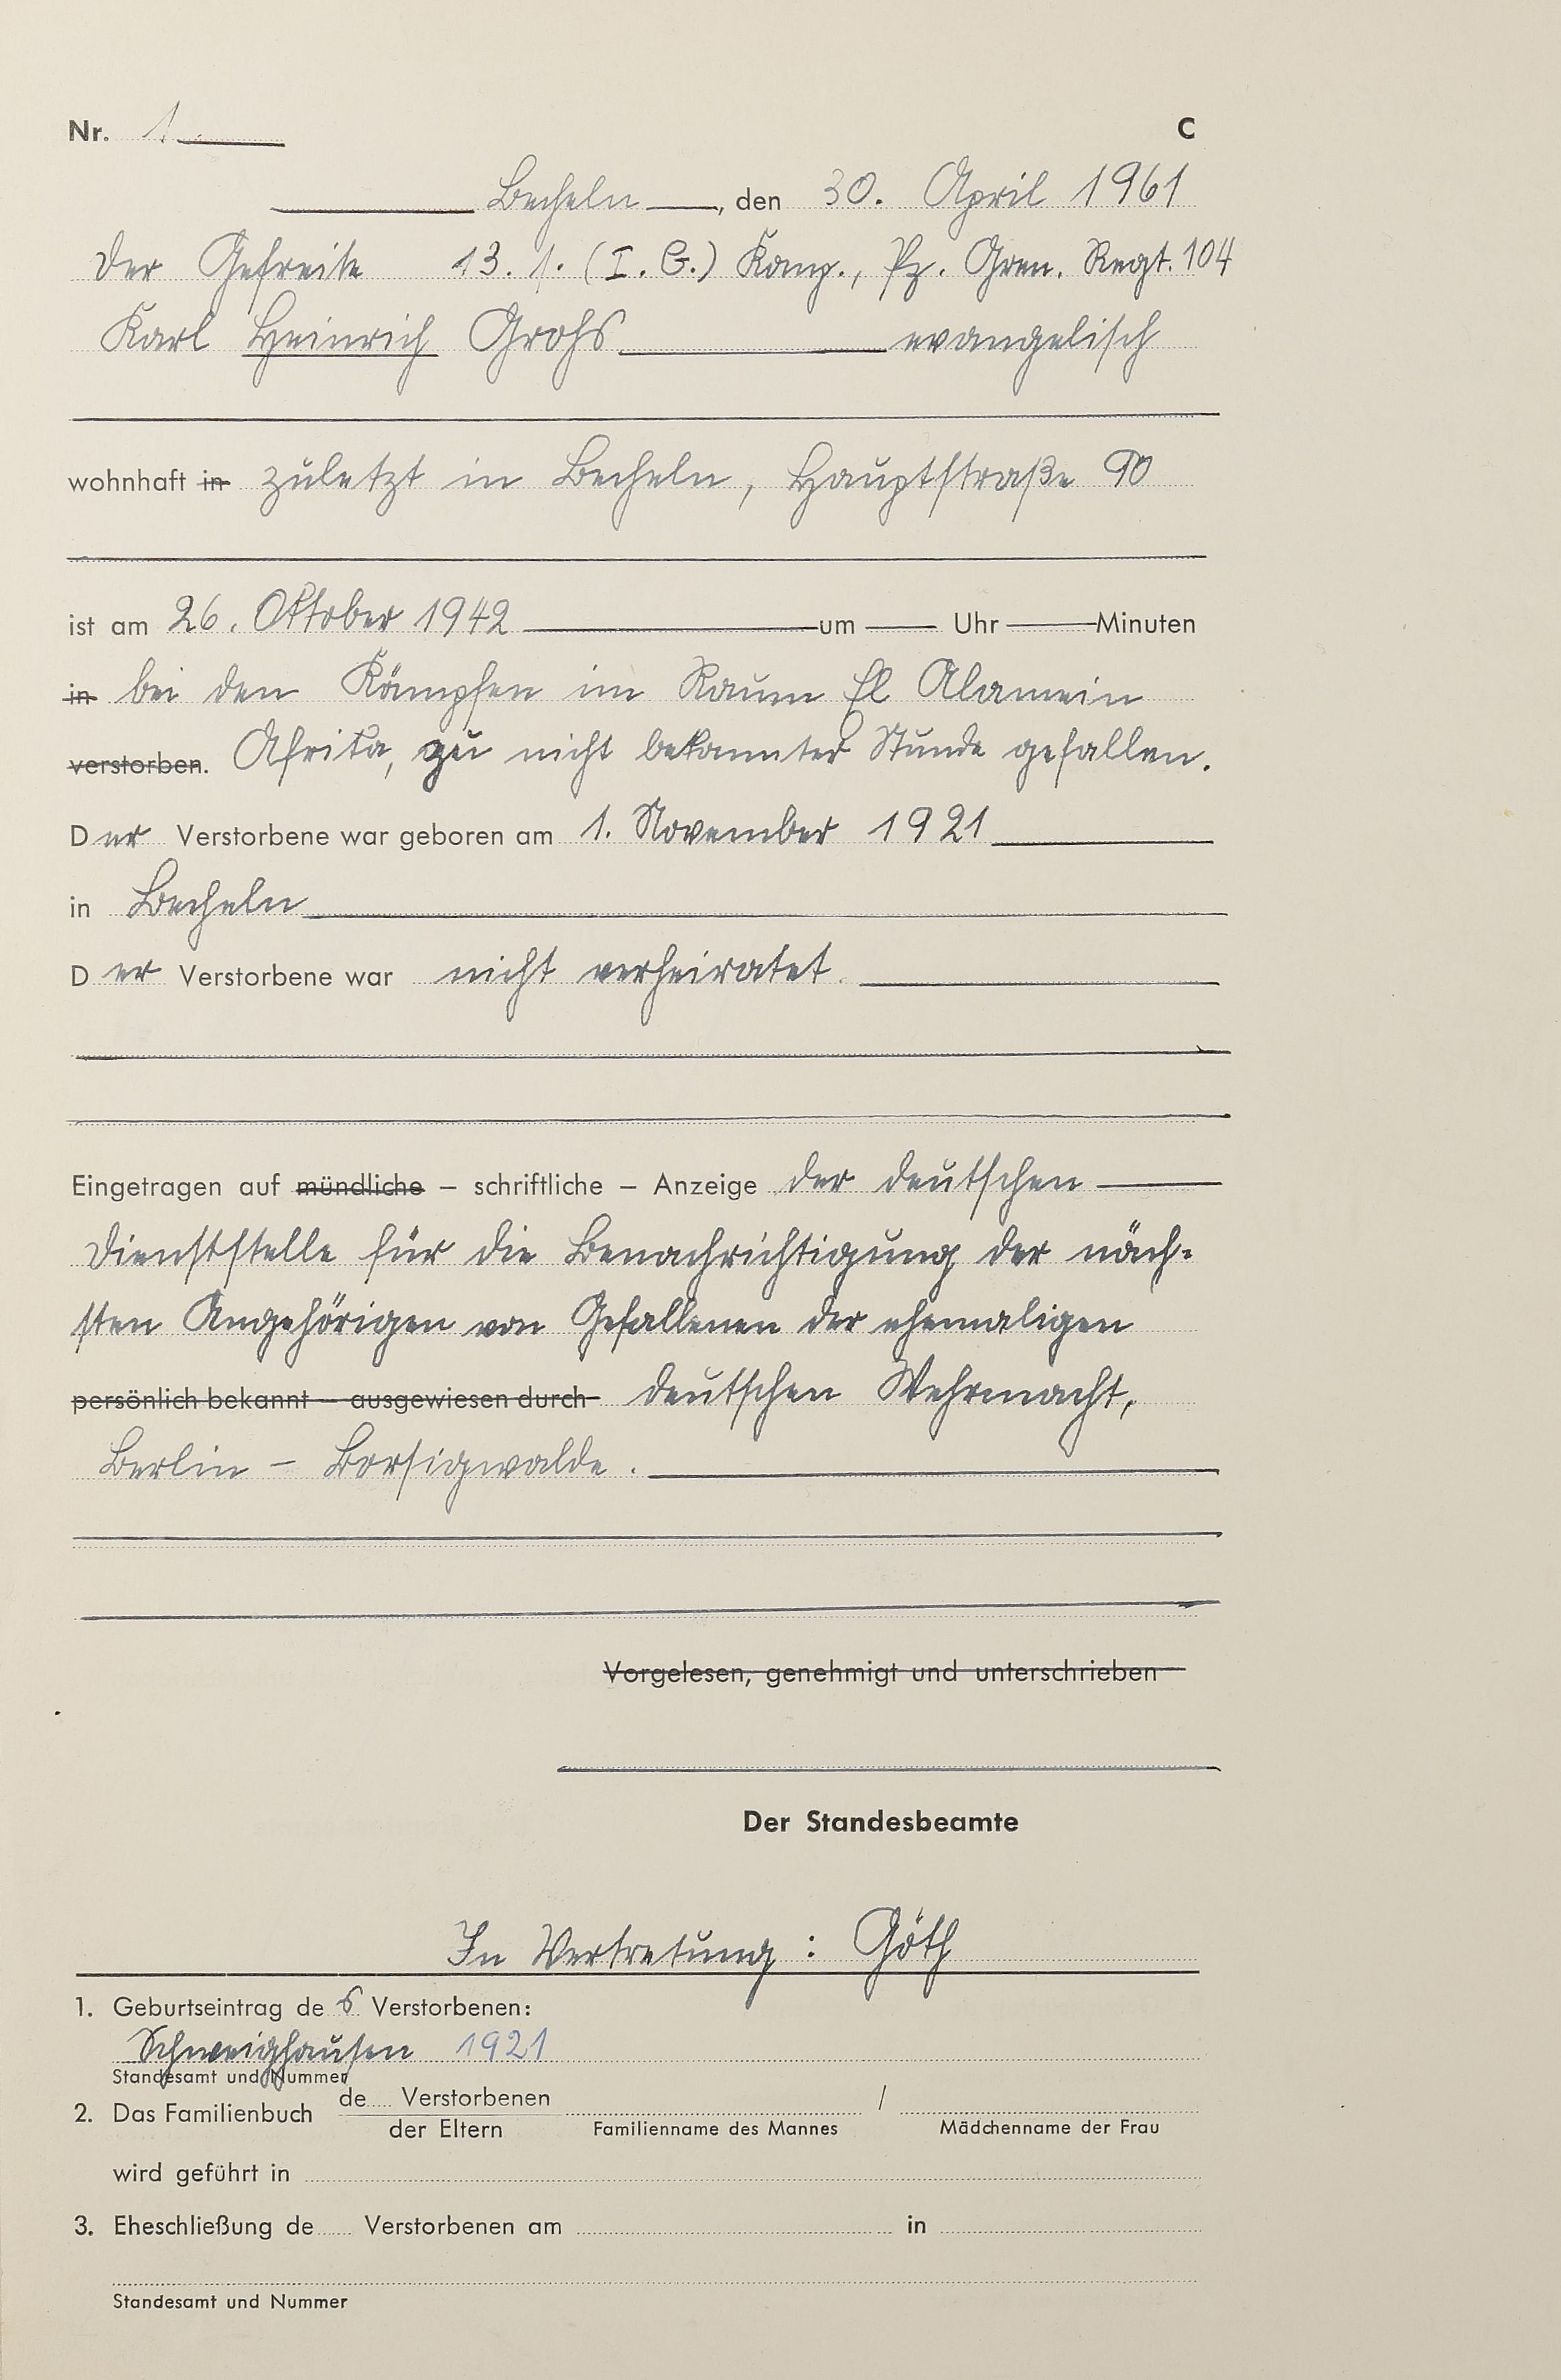 Nr. 1. C
Becheln, den 30. April 1961
Der Gefreite 13. /. (I. G.) Komp., Pz. Gren. Regt. 104
Karl Heinrich Grohs evangelisch
wohnhaft in zuletzt in Becheln, Hauptstraße 90
ist am 26. Oktober 1942 um Uhr Minuten
in bei den Kämpfen im Raum El Alamein
verstorben. Afrika, zu nicht bekannter Stunde gefallen.
Der Verstorbene war geboren am 1. November 1921
in Becheln
Der Verstorbene war nicht verheiratet.
Eingetragen auf mündliche – schriftliche – Anzeige der deutschen
Dienststelle für die Benachrichtigung der näch-
sten Angehörigen von Gefallenen der ehemaligen
persönlich bekannt – ausgewiesen durch deutschen Wehrmacht,
Berlin – Borsigwalde.
Vorgelesen, genehmigt und unterschrieben
Der Standesbeamte
In Vertretung: Göth
1. Geburtseintrag des Verstorbenen:
Schweighausen 1921
Standesamt und Nummer
2. Das Familienbuch de Verstorbenen /
der Eltern Familienname des Mannes Mädchenname der Frau
wird geführt in
3. Eheschließung de Verstorbenen am in
Standesamt und Nummer